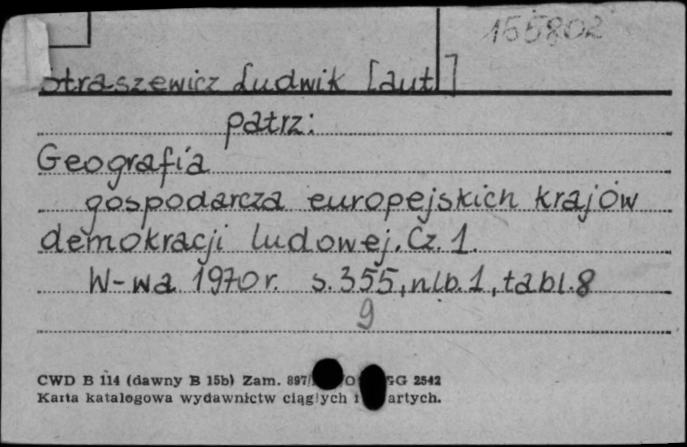 155802
Straszewicz Ludwik [aut]
patrz:
Geografia
gospodarcza europejskich krajów
demokracji ludowej. Cz. 1.
W-wa 1970 r. s. 355, nlb. 1, tabl. 8
9
CWD B 114 (dawny B 15b) Zam. 897/ GG 2542
Karta katalogowa wydawnictw ciągłych i artych.